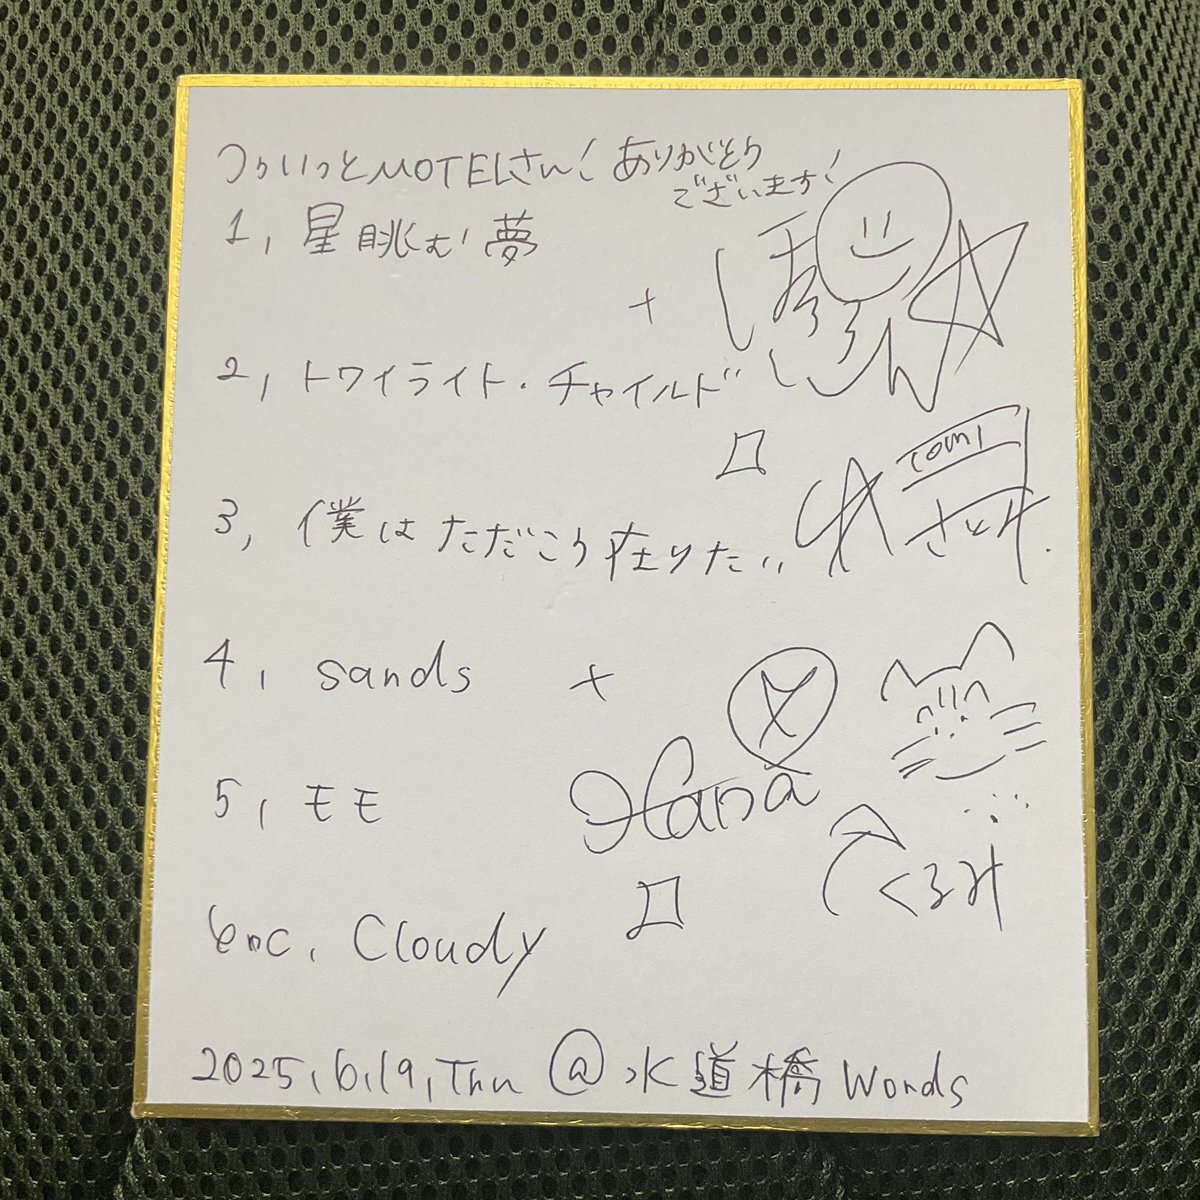 ついっとMOTELさん!ありがとう
ございます!
1, 星眺む夢
2, トワイライト・チャイルド
tomi
さとみ
3, 僕はただこう在りたい
4, sands
5, モモ
Hana
くるみ
enc, Cloudy
2025,6,19,Thu @水道橋 Words